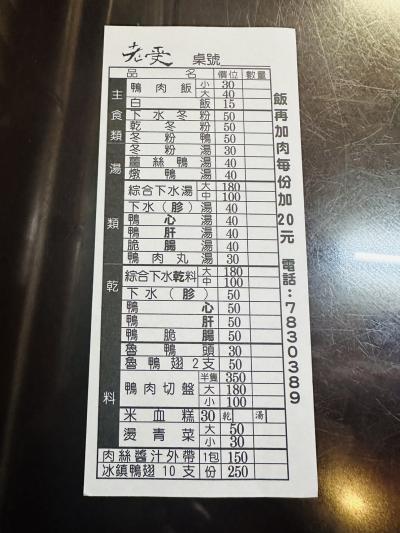 老受 桌號
品名 價位 數量
主食類
鴨肉飯 小 30
大 40
白飯 15
下水冬粉 50
乾冬粉 50
冬粉鴨 50
冬粉湯 30
湯類
薑絲鴨湯 40
燉鴨湯 40
綜合下水湯 大 180
中 100
下水(胗)湯 40
鴨心湯 40
鴨肝湯 40
脆腸湯 40
鴨肉丸湯 30
乾料
綜合下水乾料 大 180
中 100
下水(胗) 50
鴨心 50
鴨肝 50
鴨脆腸 50
魯鴨頭 30
魯鴨翅2支 50
鴨肉切盤 半隻 350
大 180
小 100
米血糕 30 乾 湯
燙青菜 大 50
小 30
肉絲醬汁外帶 1包 150
冰鎮鴨翅10支 份 250
飯再加肉每份加20元 電話:7830389